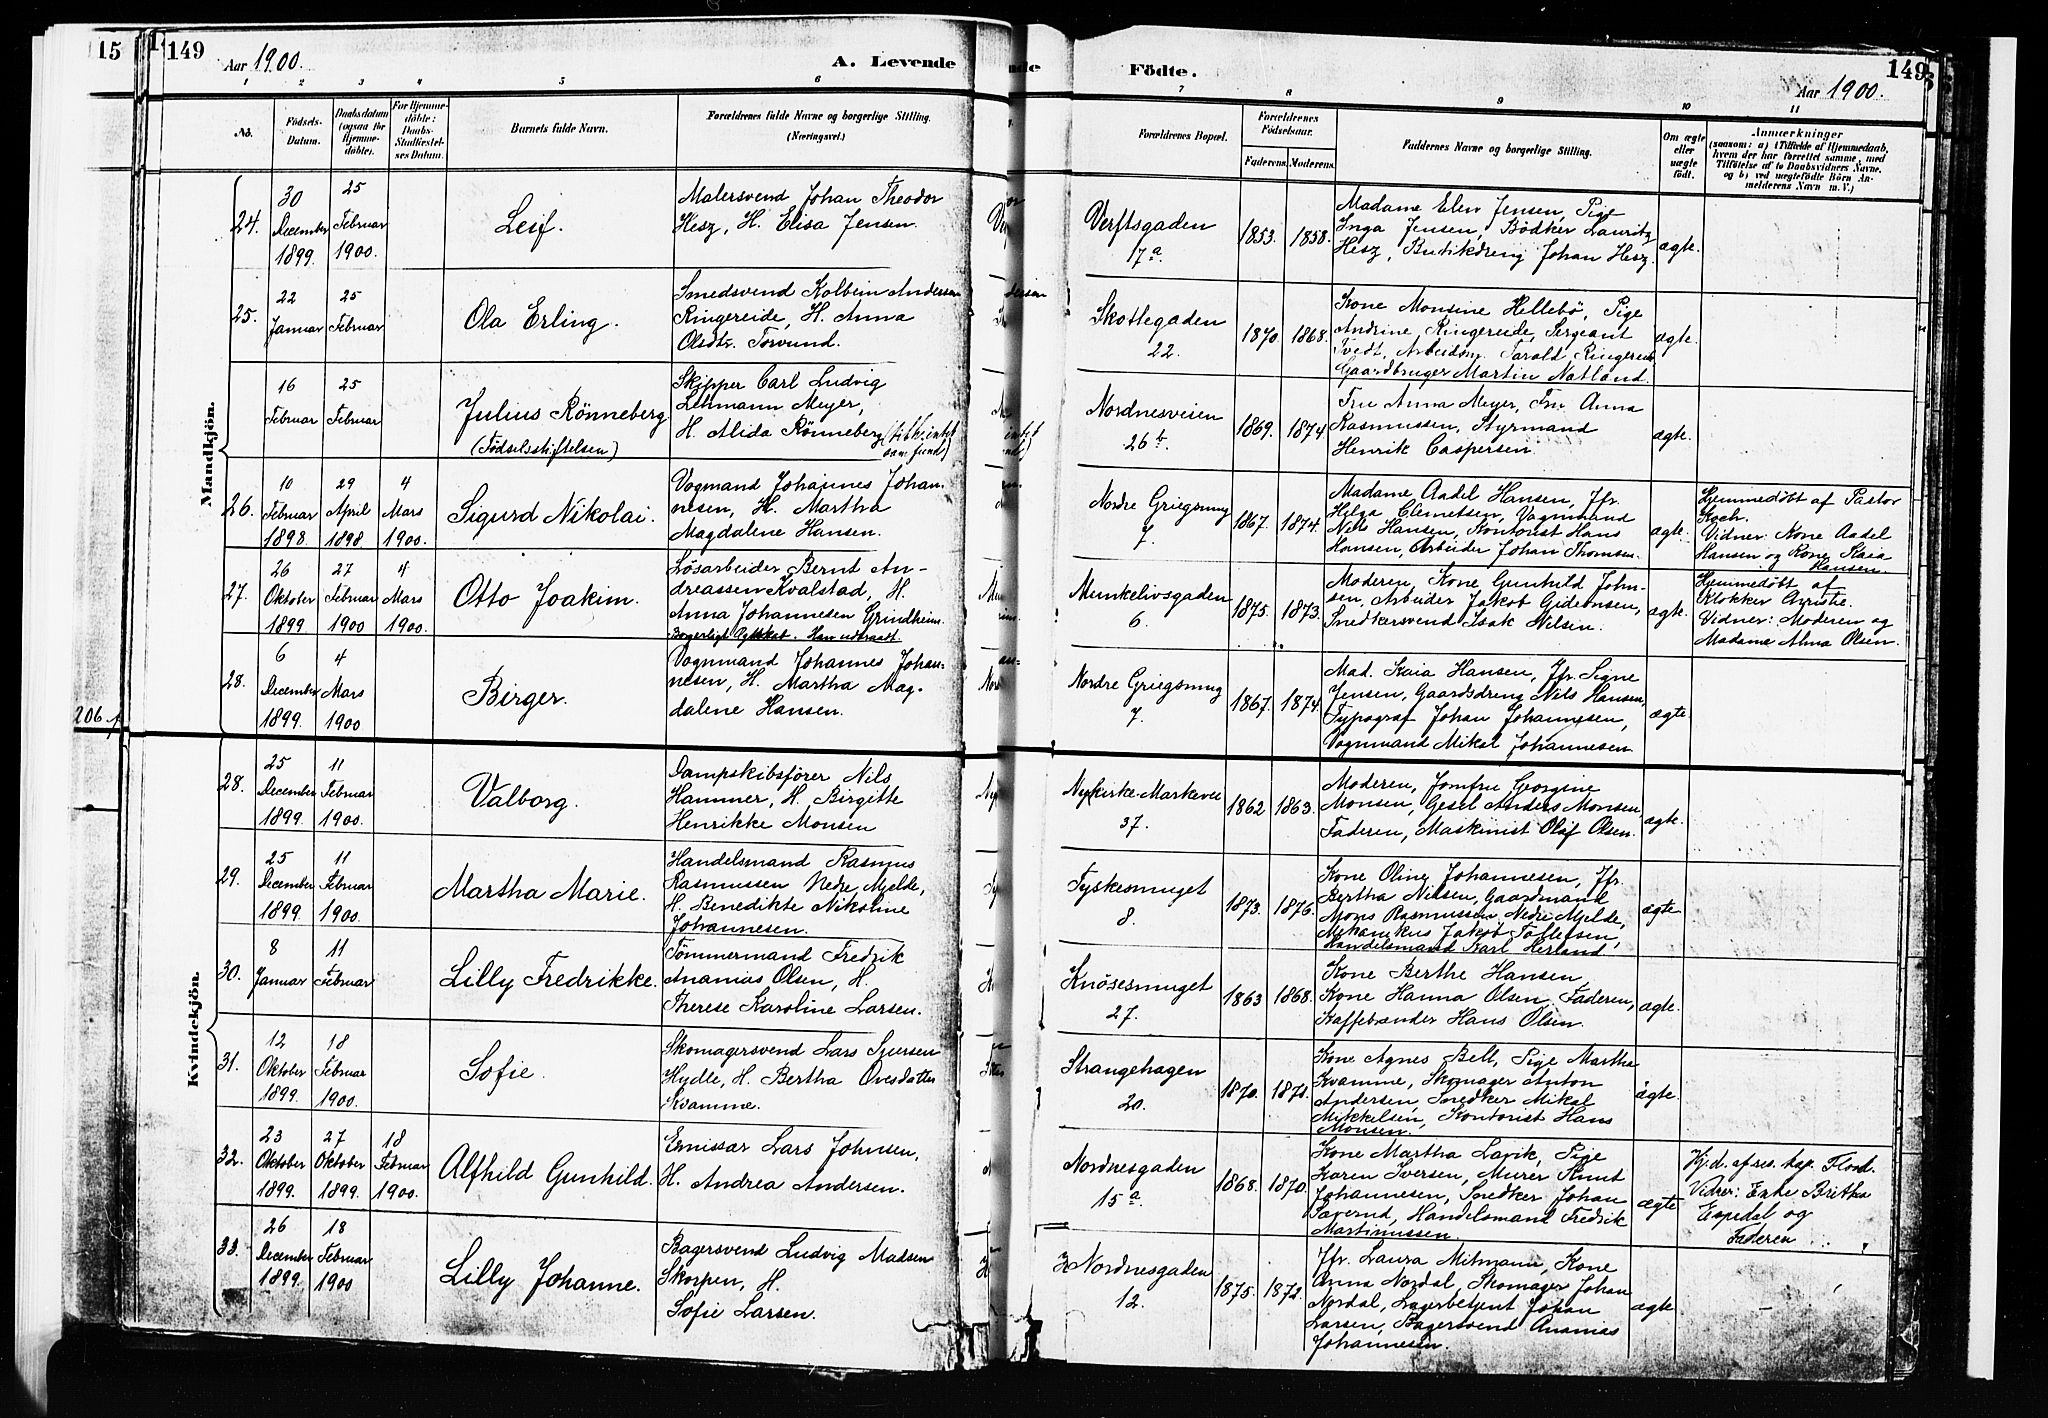 15
149
Aar 1900.
A. Levende
Födte.
149
Aar 1900.
1 2 3 4 5 6 7 8 9 10 11
No.
Födsels-
Datum.
Daabsdatum
(ogsaa for
Hjemme-
döbte).
For Hjemme-
döbte:
Daabs-
Stadfæstel-
ses Datum.
Barnets fulde Navn.
Forældrenes fulde Navne og borgerlige Stilling.
(Næringsvei.)
Forældrenes Bopæl.
Forældrenes
Födselsaar.
Faderens. Moderens.
Faddernes Navne og borgerlige Stilling.
Om ægte
eller
uægte
födt.
Anmærkninger
(saasom: a) i Tilfælde af Hjemmedaab,
hvem der har forrettet samme, med
Tilföielse af to Daabsvidners Navne,
og b) ved uægtefödte Börn An-
melderens Navn m. V.)
Mandkjön.
24.
30
December
1899.
25
Februar
1900.
Leif.
Malersvend Johan Theodor
Hesz, H. Elisa Jensen.
Verftsgaden
17a.
1853. 1858.
Madame Elen Jensen, Pige
Inga Jensen, Bödker Lauritz
Hesz, Butikdreng Johan Hesz.
ægte.
25.
22
Januar
25
Februar
Ola Erling.
Smedsvend Kolbein Andersen
Ringereide, H. Anna
Olsdtr. Torvund.
Skottegaden
22.
1870. 1868.
Kone Monsine Hellebö, Pige
Andrine Ringereide, Sergeant
Tvedt, Arbeidsm. Tarald Ringereid
Gaardbruger Martin Natland.
ægte.
16
Februar
25
Februar
Julius Rönneberg
(Födselsstiftelsen)
Skipper Carl Ludvig
Lehmann Meyer,
H. Alida Rönneberg
Nordnesveien
26b.
1869. 1874
Fru Anna Meyer, Fru Anna
Rasmussen, Styrmand
Henrik Caspersen.
ægte.
26.
10
Februar
1898.
29
April
1898.
4
Mars
1900.
Sigurd Nikolai.
Vogmand Johannes Johan-
nesen, H. Martha
Magdalene Hansen.
Nordre Griegsmug
7.
1867. 1874.
Madame Aadel Hansen, Jfr.
Helga Clemetsen, Vagnmand
Nils Hansen, Kontorist Hans
Hansen, Arbeider Johan Thomsen.
ægte.
Hjemmedöbt af Pastor
Koch.
Vidner: Kone Aadel
Hansen og Kone Kaia
Hansen.
27.
26
Oktober
1899
27
Februar
1900
4
Mars
1900.
Otto Joakim.
Lösarbeider Bernt An-
dreassen Kvalstad, H.
Anna Johannesen Grindheim.
Munkelivsgaden
6.
1875. 1873.
Moderen, Kone Gunhild John-
sen, Arbeider Jakob Gideonsen,
Snedkersvend Isak Nilsen.
ægte.
Hjemmedöbt af
Klokker Christie.
Vidner: Moderen og
Madame Alma Olsen.
28.
6
December
1899.
4
Mars
1900
Birger.
Vognmand Johannes Johan-
nesen, H. Martha Mag-
dalene Hansen.
Nordre Griegsmug
7.
1867. 1874.
Mad. Kaia Hansen, Jfr. Signe
Jensen, Gaardsdreng Nils Hansen,
Typograf Johan Johannesen,
Vognmand Mikal Johannesen.
ægte.
206
Kvindekjön.
28.
25
December
1899.
11
Februar
1900.
Valborg.
Dampskibsförer Nils
Hammer, H. Birgitte
Henrikke Monsen
Nykirke-Markevei
37.
1862 1863.
Moderen, Jomfru Georgine
Monsen, Gesel Anders Monsen
Faderen, Maskinist Olaf Olsen.
ægte.
29.
25
December
1899.
11
Februar
1900.
Martha Marie.
Handelsmand Rasmus
Rasmussen Nedre Mjelde,
H. Benedikte Nikoline
Johannesen.
Tyskesmuget
8.
1873. 1876.
Kone Oline Johannesen, Jfr.
Bertha Nilsen, Gaardmand
Mons Rasmussen Nedre Mjelde,
Mekanikus Jakob Tollefsen,
Handelsmand Karl Herland
ægte.
30.
8
Januar
11
Februar
Lilly Fredrikke.
Tömmermand Fredrik
Ananias Olsen, H.
Therese Karoline Larsen.
Knösesmuget
27.
1863 1868.
Kone Berthe Hansen
Kone Hanna Olsen, Faderen,
Kaffebrænder Hans Olsen.
ægte.
31.
12
Oktober
1899.
18
Februar
1900.
Sofie.
Skomagersvend Lars Sjursen
Hydle, H. Bertha Ovesdatter
Kvamme.
Strangehagen
20.
1870. 1871.
Kone Agnes Bell, Pige Martha
Kvamme, Skomager Anton
Andersen, Snedker Mikal
Mikkelsen, Kontorist Hans
Monsen.
ægte.
32.
23
Oktober
1899.
27
Oktober
1899.
18
Februar
1900.
Alfhild Gunhild.
Emissær Lars Johnsen,
H. Andrea Andersen.
Nordnesgaden
15a.
1868. 1870.
Kone Martha Lavik, Pige
Karen Iversen, Murer Knut
Johannesen, Snedker Johan
Sævernd, Handelsmand Fredrik
Martinussen,
ægte
Hj.d. af res. kap. Flood.
Vidner: Enke Britha
Espedal og
Faderen
33.
26
December
1899.
18
Februar
1900
Lilly Johanne.
Bagersvend Ludvig Madsen
Skorpen, H.
Sofie Larsen.
Nordnesgaden
12.
1875. 1872.
Jfr. Laura Mitmann, Kone
Anna Nordal, Skomager Johan
Nordal, Lagerbetjent Johan
Larsen, Bagersvend Ananias
Johannesen.
ægte